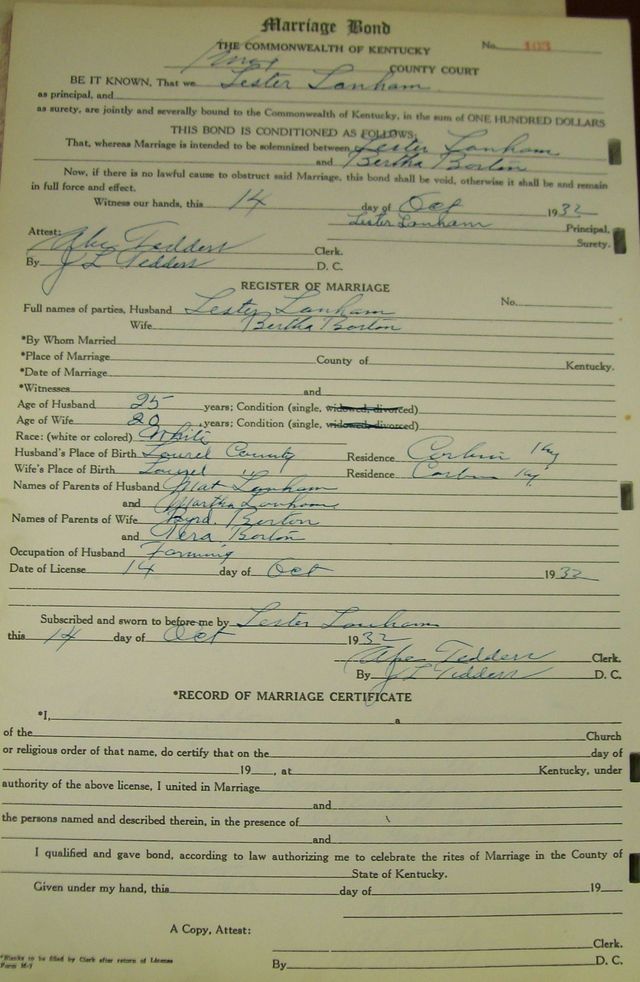 Marriage Bond
THE COMMONWEALTH OF KENTUCKY
No. 103
Knox COUNTY COURT
BE IT KNOWN, That we Lester Lanham
as principal, and
as surety, are jointly and severally bound to the Commonwealth of Kentucky, in the sum of ONE HUNDRED DOLLARS
THIS BOND IS CONDITIONED AS FOLLOWS:
That, whereas Marriage is intended to be solemnized between Lester Lanham
and Bertha Borton
Now, if there is no lawful cause to obstruct said Marriage, this bond shall be void, otherwise it shall be and remain
in full force and effect.
Witness our hands, this 14 day of Oct 1932
Lester Lanham Principal,
Attest: Surety.
Abe Tedders Clerk.
By J L Tedders D. C.
REGISTER OF MARRIAGE
Full names of parties, Husband Lester Lanham No.
Wife Bertha Borton
*By Whom Married
*Place of Marriage County of Kentucky.
*Date of Marriage
*Witnesses and
Age of Husband 25 years; Condition (single, widowed, divorced)
Age of Wife 20 years; Condition (single, widowed, divorced)
Race: (white or colored) White
Husband's Place of Birth Laurel County Residence Corbin Ky
Wife's Place of Birth Laurel " Residence Corbin Ky
Names of Parents of Husband Mat Lanham
and Martha Lanham
Names of Parents of Wife Byrd Borton
and Borton
Occupation of Husband Farming
Date of License 14 day of Oct 1932
Subscribed and sworn to before me by Lester Lanham
this 14 day of Oct 1932
Abe Tedders Clerk.
By J L Tedders D. C.
*RECORD OF MARRIAGE CERTIFICATE
*I, a
of the Church
or religious order of that name, do certify that on the day of
19 , at Kentucky, under
authority of the above license, I united in Marriage
and
the persons named and described therein, in the presence of
and
I qualified and gave bond, according to law authorizing me to celebrate the rites of Marriage in the County of
State of Kentucky.
Given under my hand, this day of 19
A Copy, Attest:
Clerk.
*Blanks to be filled by Clerk after return of License
Form M-7
By D. C.